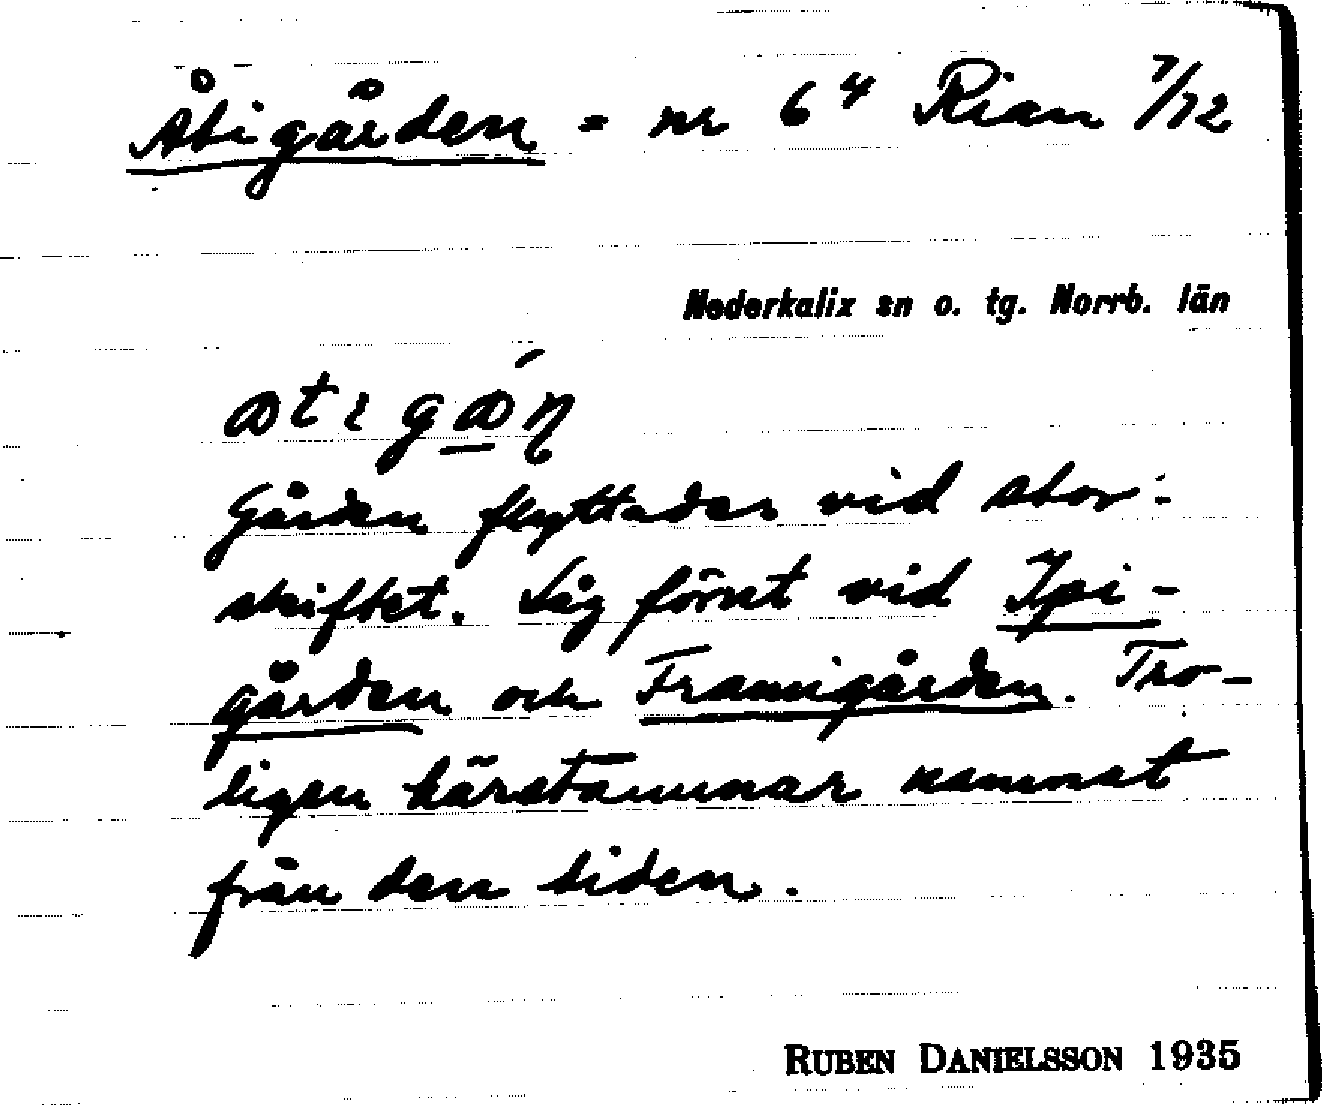 Åtigården = nr 6⁴ Rian 7/12
Nederkalix sn o. tg. Norrb. län
Gården flyttades vid stor-
skiftet. Låg först vid Ypi-
gården och Framigården. Tro-
ligen härstammar namnet
från den tiden.
RUBEN DANIELSSON 1935